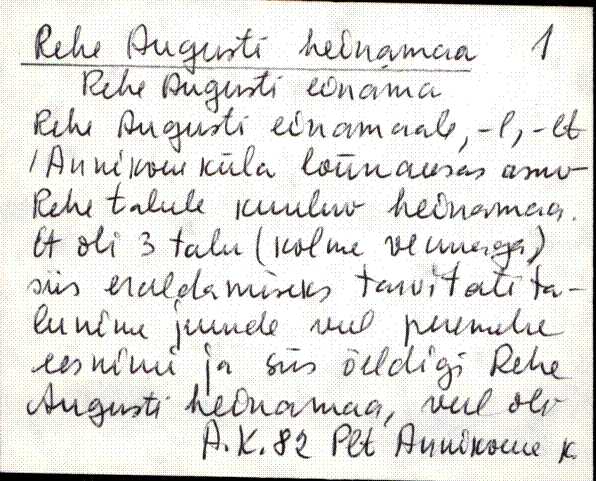 Rehe Augusti heinamaa 1
Rehe Augusti einama
Rehe Augusti einamaale, -l, -lt
/Annikvere küla lõunaosas asuv
Rehe talule kuuluv heinamaa.
Et oli 3 talu (kolme vennaga)
siis eraldamiseks tarvitati ta-
lunime juurde veel peremehe
eesnimi ja siis öeldigi Rehe
Augusti heinamaa, veel oli
A.K. 82 Plt Annikvere k